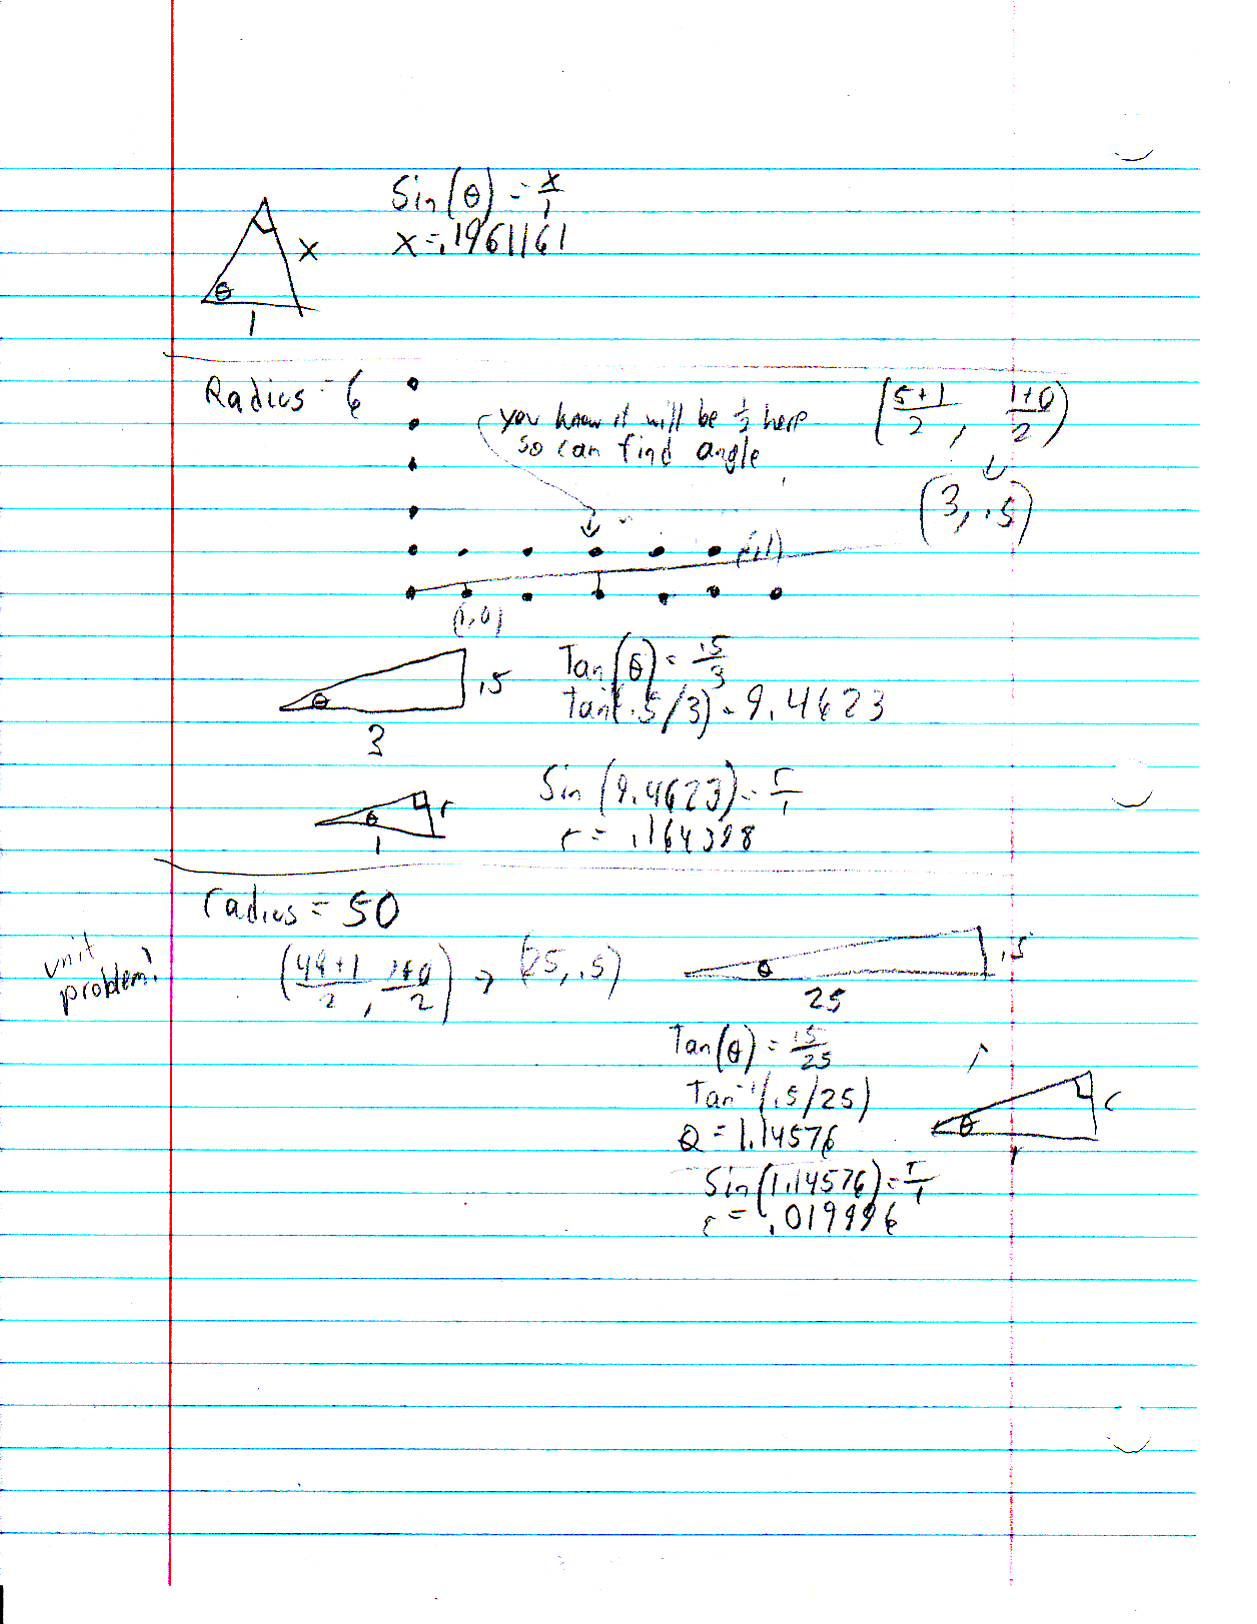 Sin(θ) = x/1
x = .1961161
x
θ
1
Radius = 6
you know it will be ½ here
so can find angle
(5+1/2, 1+0/2)
↓
(3, .5)
(5,1)
(1,0)
θ
.5
3
Tan(θ) = .5/3
Tan⁻¹(.5/3) = 9.4623
θ
r
1
Sin(9.4623) = r/1
r = .164398
radius = 50
unit
problem?
(49+1/2, 1+0/2) → (25, .5)
θ
.5
25
Tan(θ) = .5/25
Tan⁻¹(.5/25)
θ = 1.14576
θ
r
1
Sin(1.14576) = r/1
r = .019996